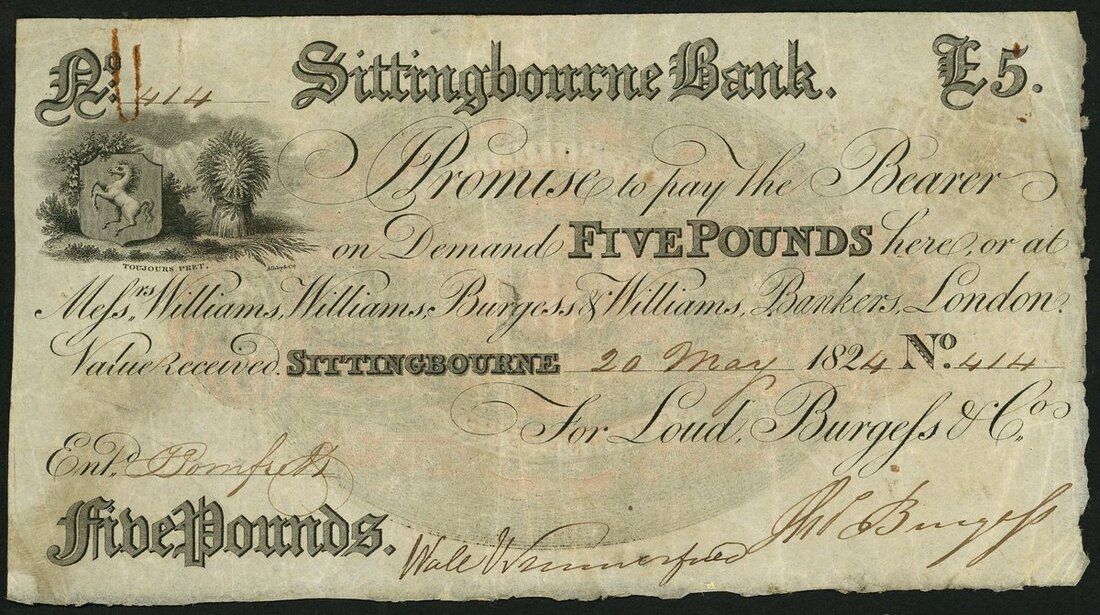 No. 414 Sittingbourne Bank. £5.
I Promise to pay the Bearer
on Demand FIVE POUNDS here, or at
TOUJOURS PRET.
Messrs. Williams, Williams, Burgess & Williams, Bankers, London.
Value Received. SITTINGBOURNE 20 May 1824 No. 414
For Loud, Burgess & Co.
Entd.
Five Pounds.
Burgess